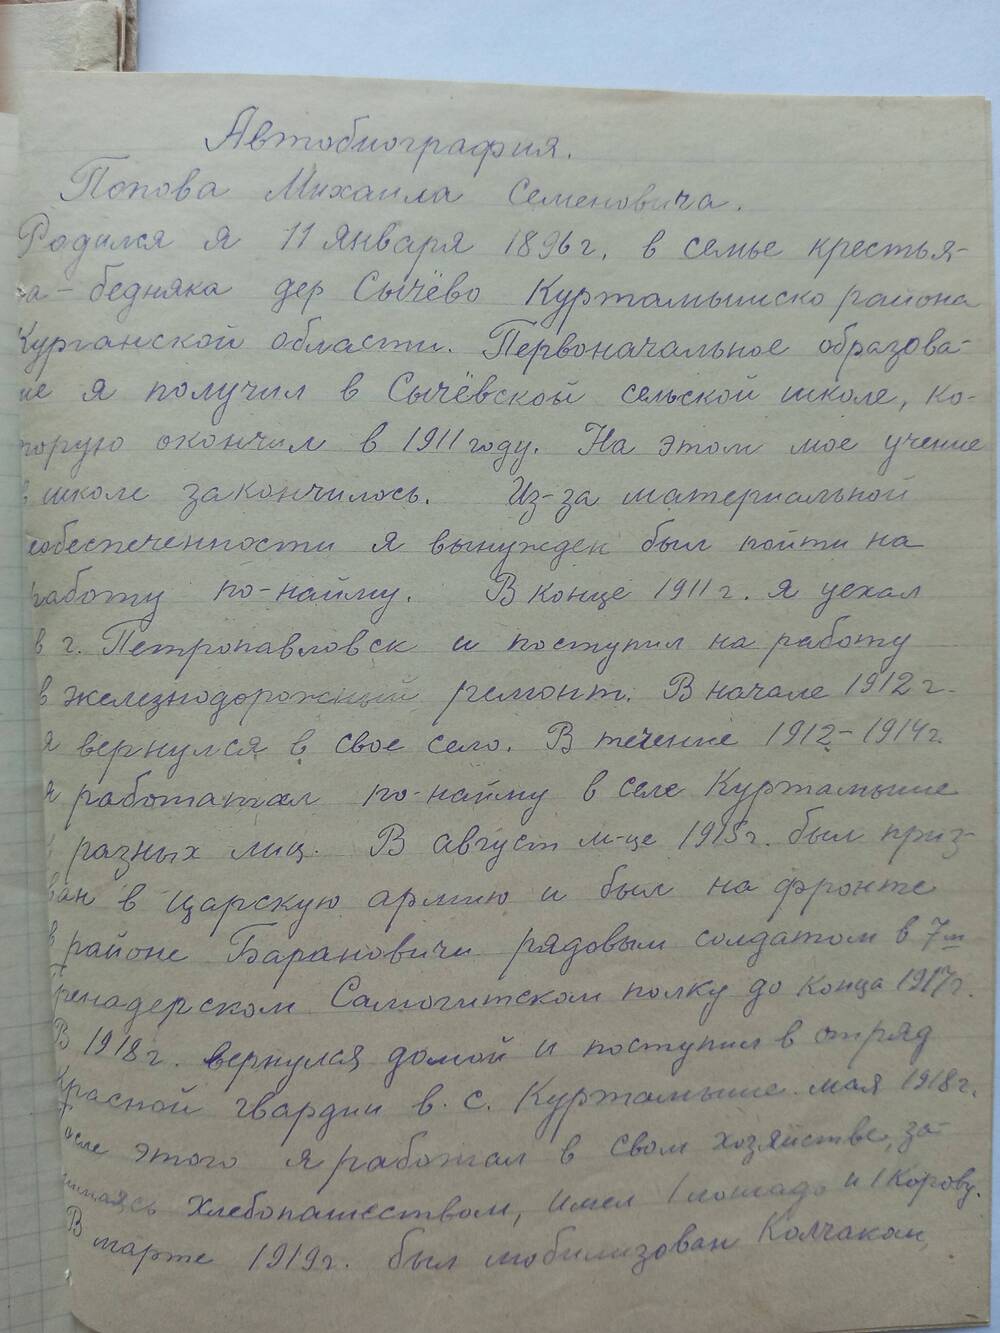 Автобиография.
Попова Михаила Семеновича.
Родился я 11 января 1896г. в семье крестья-
на-бедняка дер Сычёво Куртамышско района
Курганской области. Первоначальное образова-
ие я получил в Сычёвской сельской школе, ко-
торую окончил в 1911 году. На этом мое учение
в школе закончилось. Из-за материальной
еобеспеченности я вынужден был пойти на
работу по-найму. В конце 1911 г. я уехал
в г. Петропавловск и поступил на работу
в железнодорожный ремонт. В начале 1912 г.
я вернулся в свое село. В течение 1912-1914г.
я работал по-найму в селе Куртамыше
у разных лиц. В август м-це 1915г. был приз-
ван в царскую армию и был на фронте
в районе Барановичи рядовым солдатом в 7м
Гренадерском Самогитском полку до конца 1917г.
В 1918г. вернулся домой и поступил в отряд
Красной гвардии в. с. Куртамыше мая 1918г.
После этого я работал в свом хозяйстве, за-
нимаясь хлебопашеством, имел 1 лошадь и 1 корову.
В марте 1919г. был мобилизован Колчаком,